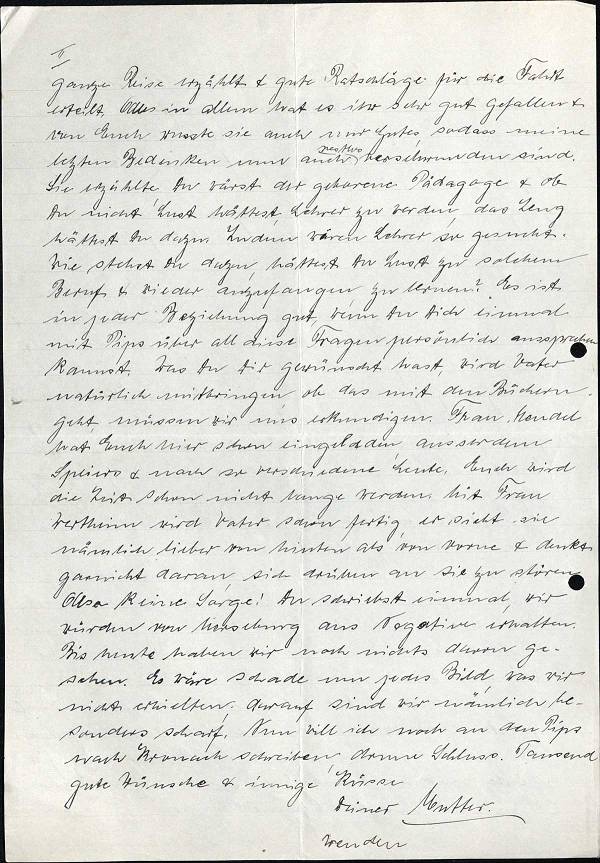 II
ganze Reise erzählt & gute Ratschläge für die Fahrt
erteilt. Alles in allem hat es ihr sehr gut gefallen &
von Euch wusste sie auch nur Gutes, sodass meine
letzten Bedenken nun auch restlos verschwunden sind.
Sie erzählte Du wärst der geborene Pädagoge & ob
Du nicht Lust hättest, Lehrer zu werden, das Zeug
hättest Du dazu. Zudem wären Lehrer so gesucht.
Wie stehst Du dazu, hättest Du Lust zu solchem
Beruf & wieder anzufangen zu lernen? Es ist
in jeder Beziehung gut, wenn Du Dich einmal
mit Pips über all diese Fragen persönlich aussprechen
kannst. Was Du Dir gewünscht hast, wird Vater
natürlich mitbringen, ob das mit den Büchern
geht müssen wir uns erkundigen. Frau Mendel
hat Euch hier schon eingeladen, ausserdem
& noch so verschiedene Leute, Euch wird
die Zeit schon nicht lange werden. Mit Frau
Wertheim wird Vater schon fertig, er sieht sie
nämlich lieber von hinten als von vorne & denkt
garnicht daran, sich drüben an sie zu stören.
Also keine Sorge! Du schriebst einmal, wir
würden von aus Negative erhalten.
Bis heute haben wir noch nichts davon ge-
sehen. Es wäre schade um jedes Bild, was wir
nicht erhielten, darauf sind wir nämlich be-
sonders scharf. Nun will ich noch an den Pips
nach Kronach schreiben, drum Schluss. Tausend
gute Wünsche & innige Küsse
Deiner Mutter.
wenden